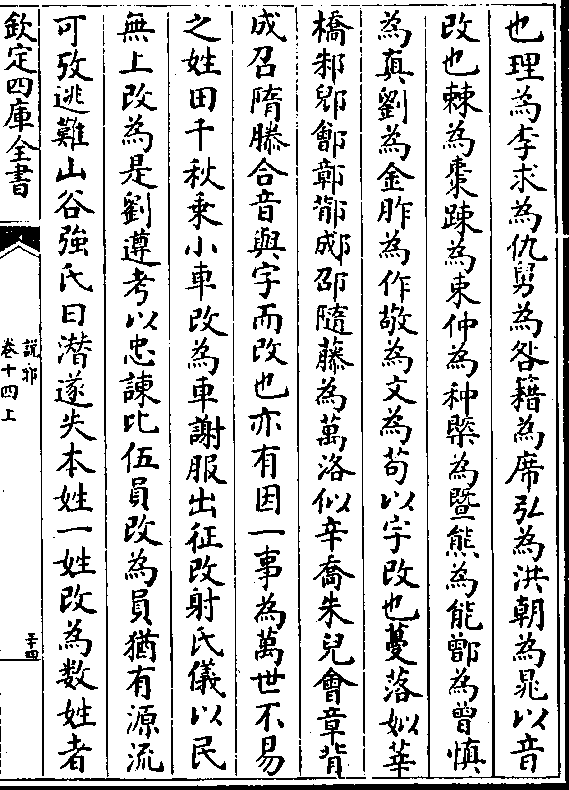 也理為李求為仇舅為咎籍為席弘為洪朝為晁以音
改也棘為棗踈為束仲為种槩為暨熊為能鄫為曾慎
為真劉為金胙為作敬為文為茍以字改也蔓落姒莘
橋邾郳鄶鄣鄁郕邵隨藤為萬洛似辛喬朱兒會章背
成召隋滕合音與字而改也亦有因一事為萬世不易
之姓田千秋乗小車改為車謝服出征改射氏儀以民
無上改為是劉遵考以忠諫比伍員改為員猶有源流
可攷逃難山谷強氏曰潜遂失本姓一姓改為数姓者
欽定四庫全書
說郛
卷十四上
二十四